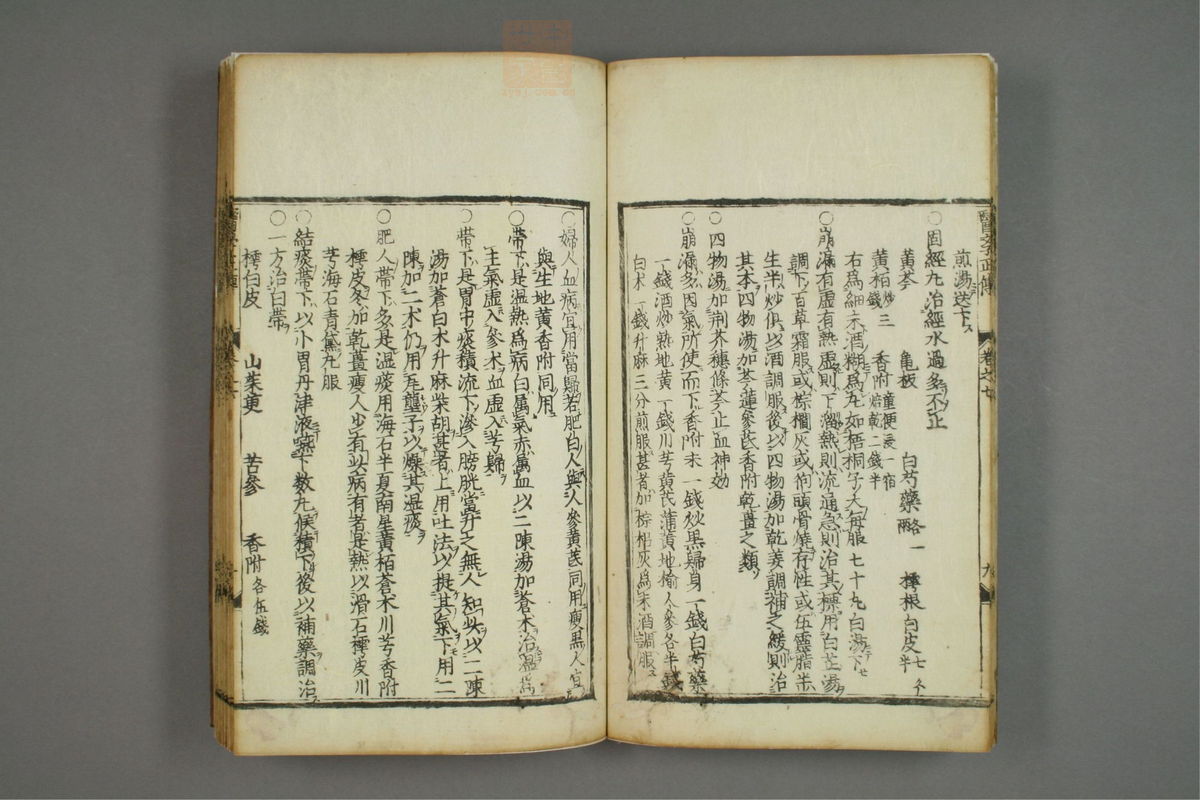 醫學正傳 卷之七 九
煎湯送下ス
○固經丸治經水過多不止
黄芩 亀板 白芍藥略一 樗根白皮七半
黄栢炒三錢 香附童便浸一宿焙乾二錢半
右爲細末酒糊爲丸如梧桐子大每服七十丸白湯下
○崩漏有虚有熱虚則下溜熱則流通急則治其標用白芷湯
調下百草霜服或棕櫚灰或狗頭骨燒存性或伍靈脂半
生半炒俱以酒調服後以四物湯加乾姜調補之緩則治
其本四物湯加芩連參芪香附乾薑之類
○四物湯加荆芥穗條芩止血神効
○崩漏多因氣所使而下香附末一錢炒黒歸身一錢白芍藥
一錢酒炒熟地黄一錢川芎黄芪蒲黄地榆人參各半錢
白术一錢升麻三分煎服甚者加棕梠灰爲末酒調服
○婦人血病宜用當歸若肥白人與人參黄芪同用瘦黒人宜
與生地黄香附同用
○帶下是濕熱爲病白属氣赤属血以二陳湯加蒼术治濕爲
主氣虚入參术血虚入芎歸
○帶下是胃中痰積流下滲入膀胱當升之無人知此以二陳
湯加蒼白术升麻柴胡甚者上用吐法以提其氣下用二
陳加二术仍用瓦壟子以燥其濕痰
○肥人帶下多是濕痰用海石半夏南星黄栢蒼术川芎香附
樗皮冬加乾薑瘦人少有此病有者是熱以滑石樗皮川
芎海石青黛丸服
○結痰帶下以小胃丹津液嚥下数丸候積下後以補藥調治
○一方治白帶
樗白皮 山茱萸 苦參 香附各伍錢